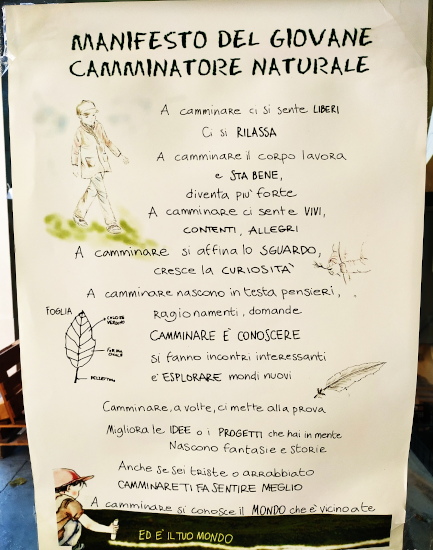 MANIFESTO DEL GIOVANE
CAMMINATORE NATURALE
A camminare ci si sente LIBERI
Ci si RILASSA
A camminare il corpo lavora
e STA BENE,
diventa piu' forte
A camminare ci sente VIVI,
CONTENTI, ALLEGRI
A camminare si affina lo SGUARDO,
cresce la CURIOSITA'
A camminare nascono in testa pensieri,
ragionamenti, domande
FOGLIA
CAMMINARE E' CONOSCERE
si fanno incontri interessanti
e' ESPLORARE mondi nuovi
Camminare, a volte, ci mette alla prova
Migliora le IDEE o i PROGETTI che hai in mente
Nascono fantasie e storie
Anche se sei triste o arrabbiato
CAMMINARE TI FA SENTIRE MEGLIO
A camminare si conosce il MONDO che e' vicino a te
ED E' IL TUO MONDO